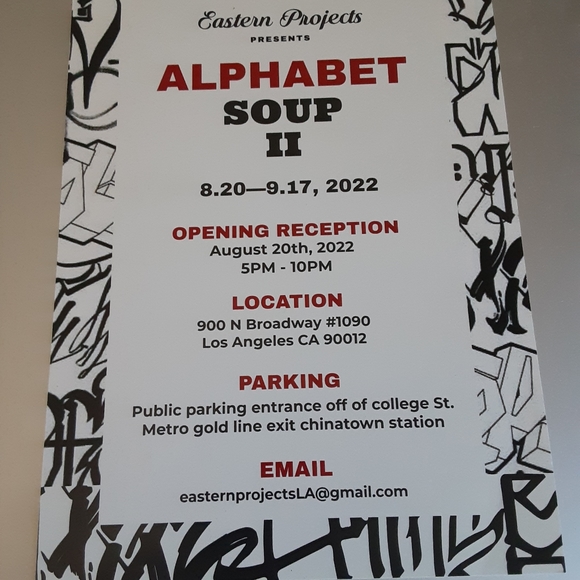 Eastern Projects
PRESENTS
ALPHABET
SOUP
II
8.20—9.17, 2022
OPENING RECEPTION
August 20th, 2022
5PM - 10PM
LOCATION
900 N Broadway #1090
Los Angeles CA 90012
PARKING
Public parking entrance off of college St.
Metro gold line exit chinatown station
EMAIL
easternprojectsLA@gmail.com